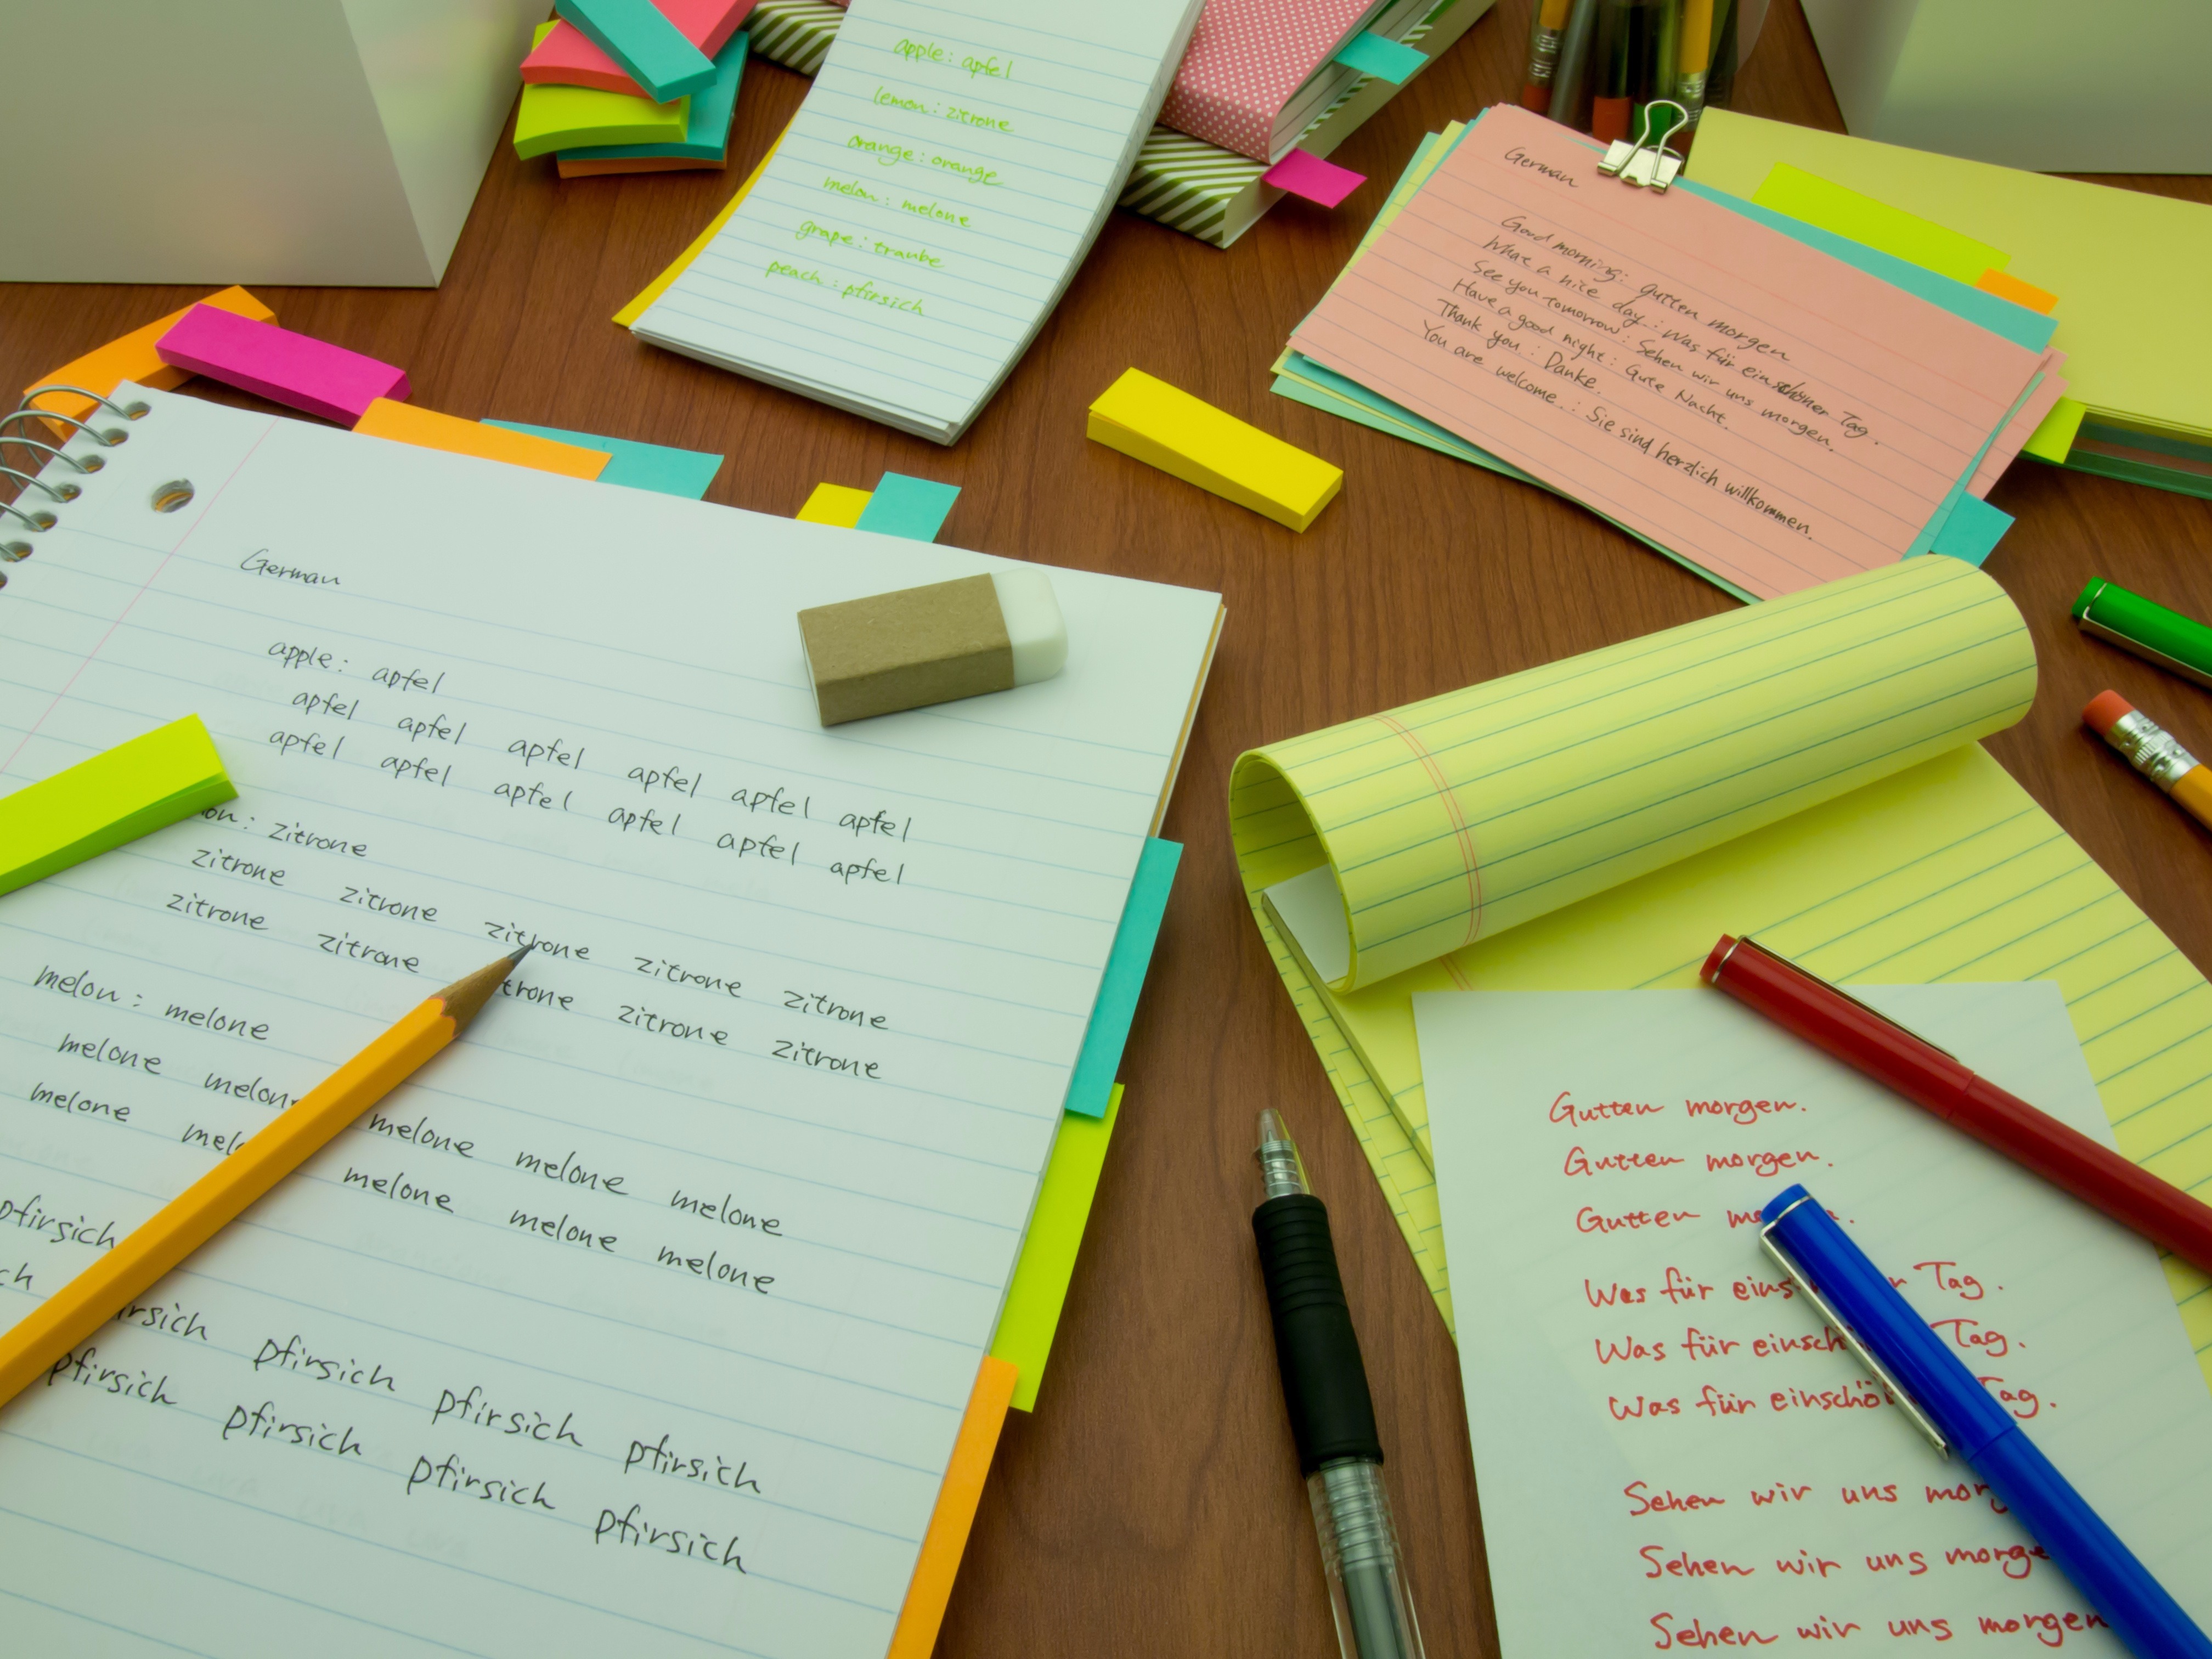 apple: apfel
lemon: zitrone
orange: orange
melon: melone
grape: traube
peach: pfirsich
German
Good morning: gutten morgen
What a nice day: Was für einschöner Tag.
See you tomorrow: Sehen wir uns morgen.
Have a good night: Gute Nacht.
Thank you: Danke.
You are welcome.: Sie sind herzlich willkommen.
German
apple: apfel
apfel apfel apfel apfel apfel apfel
apfel apfel apfel apfel apfel apfel
zitrone
zitrone zitrone zitrone zitrone zitrone
zitrone zitrone zitrone zitrone
melon: melone
melone melone melone melone
melone melone melone melone
pfirsich
pfirsich pfirsich pfirsich
pfirsich pfirsich pfirsich pfirsich
Gutten morgen.
Gutten morgen.
Gutten
Was für Tag.
Was für Tag.
Was für Tag.
Sehen wir uns
Sehen wir uns
Sehen wir uns morgen